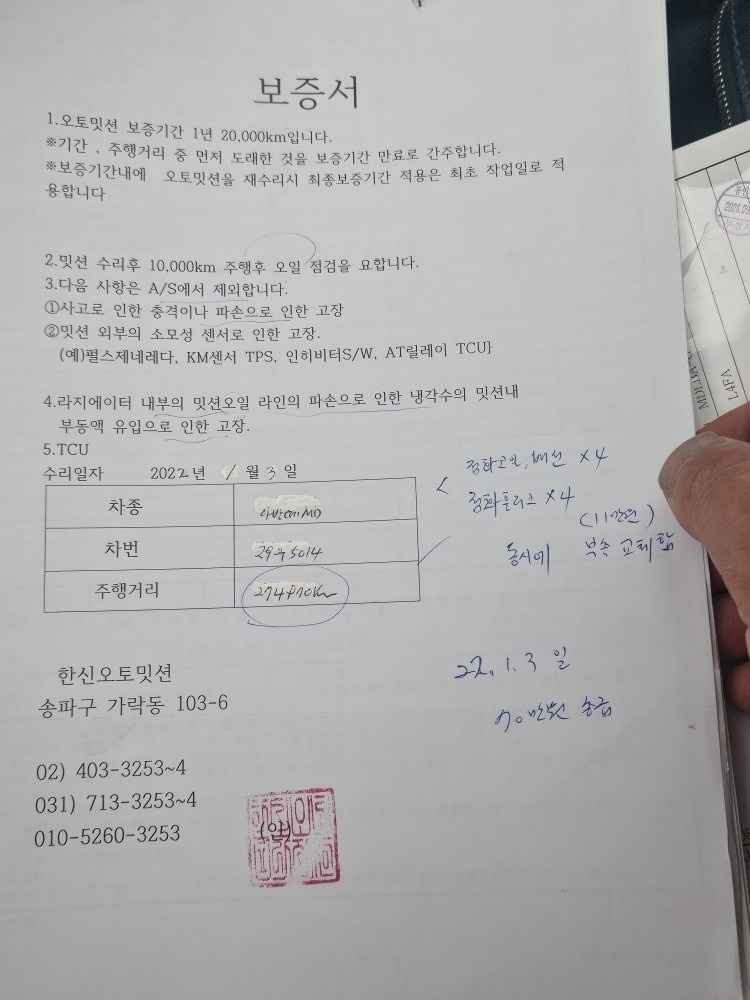 보증서
1.오토밋션 보증기간 1년 20,000km입니다.
※기간 , 주행거리 중 먼저 도래한 것을 보증기간 만료로 간주합니다.
※보증기간내에 오토밋션을 재수리시 최종보증기간 적용은 최초 작업일로 적
용합니다
2.밋션 수리후 10,000km 주행후 오일 점검을 요합니다.
3.다음 사항은 A/S에서 제외합니다.
①사고로 인한 충격이나 파손으로 인한 고장
②밋션 외부의 소모성 센서로 인한 고장.
(예)펄스제네레다, KM센서 TPS, 인히비터S/W, AT릴레이 TCU}
4.라지에이터 내부의 밋션오일 라인의 파손으로 인한 냉각수의 밋션내
부동액 유입으로 인한 고장.
5.TCU
수리일자 2022년 1월 3일
차종 아반떼MD
차번 29구5014
주행거리
< 점화코일, 배선 ×4
점화플러그 ×4
(11만원)
동시에 부속 교체함
22. 1. 3 일
70만원 송금
한신오토밋션
송파구 가락동 103-6
02) 403-3253~4
031) 713-3253~4
010-5260-3253
(인)
L4FA